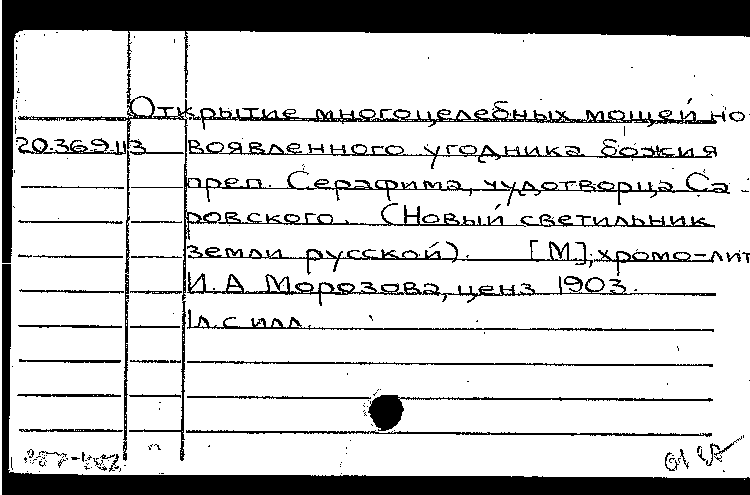 Открытие многоцелебных мощей но-
20.369.113 воявленного угодника божия
преп. Серафима, чудотворца Са-
ровского. (Новый светильник
земли русской). [М.], хромо-лит
И.А Морозова, ценз 1903.
1л. с илл.